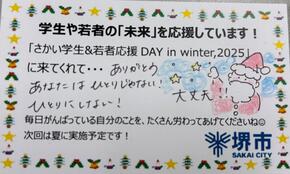 学生や若者の「未来」を応援しています！
「さかい学生&若者応援 DAY in winter,2025」
に来てくれて・・・ ありがとう
あなたは ひとりじゃない！
ひとりにしない！
大丈夫！
毎日がんばっている自分のことを、たくさん労わってあげてくださいね☺
次回は夏に実施予定です！
堺市
SAKAI CITY